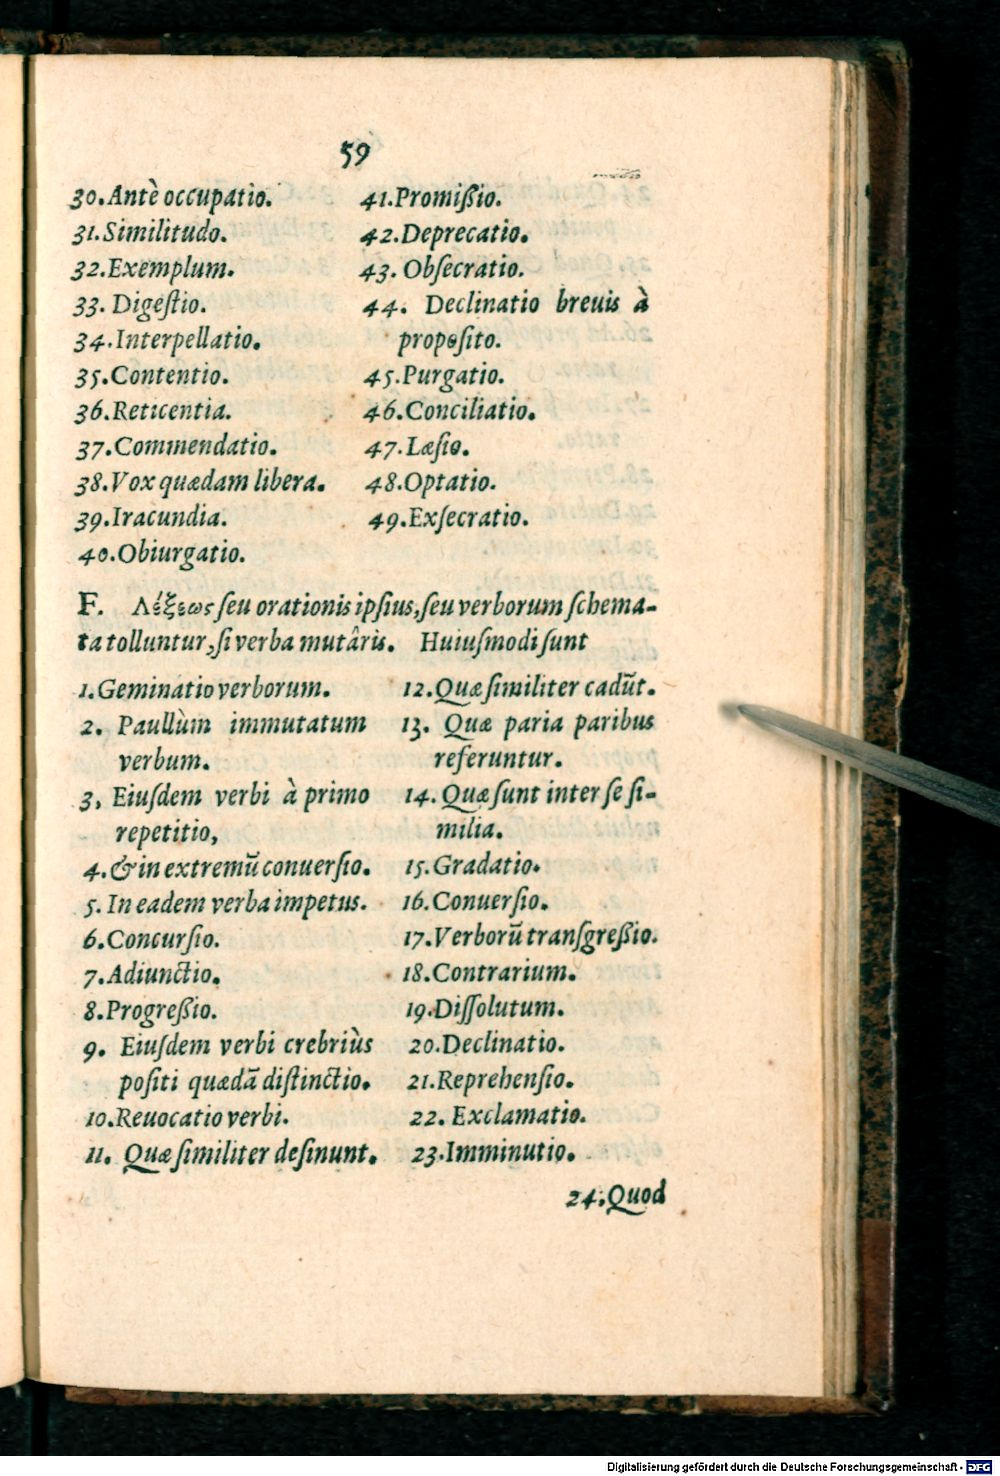 59
30. Antè occupatio.
31. Similitudo.
32. Exemplum.
33. Digeſtio.
34. Interpellatio.
35. Contentio.
36. Reticentia.
37. Commendatio.
38. Vox quædam libera.
39. Iracundia.
40. Obiurgatio.
41. Promißio.
42. Deprecatio.
43. Obſecratio.
44. Declinatio breuis à
propoſito.
45. Purgatio.
46. Conciliatio.
47. Læſio.
48. Optatio.
49. Exſecratio.
F. Λέξεως ſeu orationis ipſius, ſeu verborum ſchema-
ta tolluntur, ſi verba mutâris. Huiuſmodi ſunt
1. Geminatio verborum.
2. Paullùm immutatum
verbum.
3, Eiuſdem verbi à primo
repetitio,
4. & in extremũ conuerſio.
5. In eadem verba impetus.
6. Concurſio.
7. Adiunctio.
8. Progreßio.
9. Eiuſdem verbi crebriùs
poſiti quædã diſtinctio.
10. Reuocatio verbi.
11. Quæ ſimiliter deſinunt.
12. Quæ ſimiliter cadũt.
13. Quæ paria paribus
referuntur.
14. Quæ ſunt inter ſe ſi-
milia.
15. Gradatio.
16. Conuerſio.
17. Verborũ tranſgreßio.
18. Contrarium.
19. Diſſolutum.
20. Declinatio.
21. Reprehenſio.
22. Exclamatio.
23. Imminutio.
24. Quod
Digitalisierung gefördert durch die Deutsche Forschungsgemeinschaft - DFG